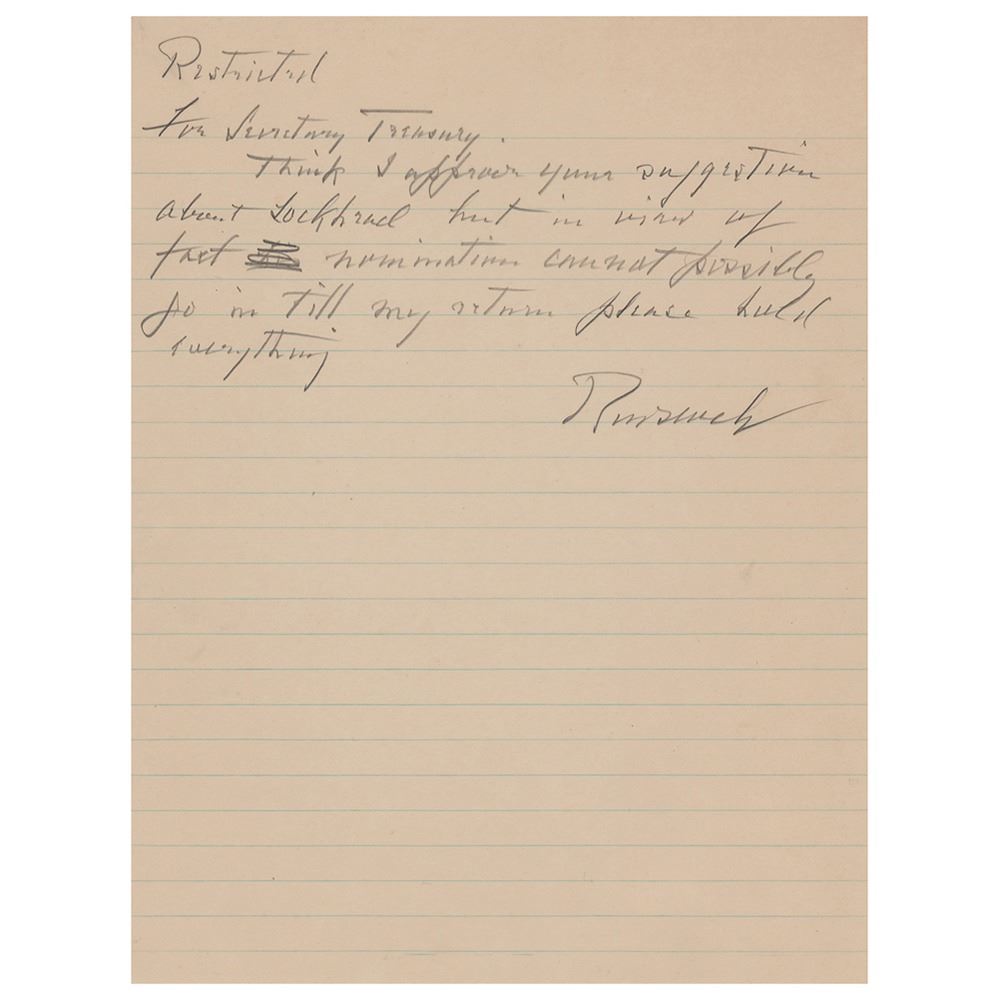 Restricted
For Secretary Treasury.
Think I approve your suggestion
about Lochhead but in view of
fact nomination cannot possibly
go in till my return please hold
everything
Roosevelt